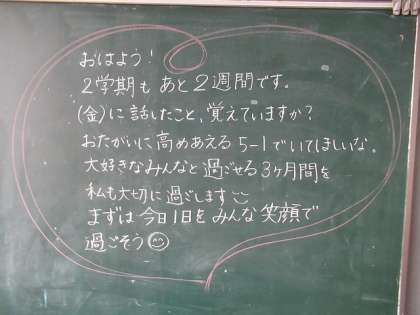 おはよう!
2学期も あと2週間です。
(金)に話したこと、覚えていますか?
おたがいに高めあえる 5-1でいてほしいな。
大好きなみんなと過ごせる3ヶ月間を
私も大切に過ごします
まずは今日1日をみんな笑顔で
過ごそう